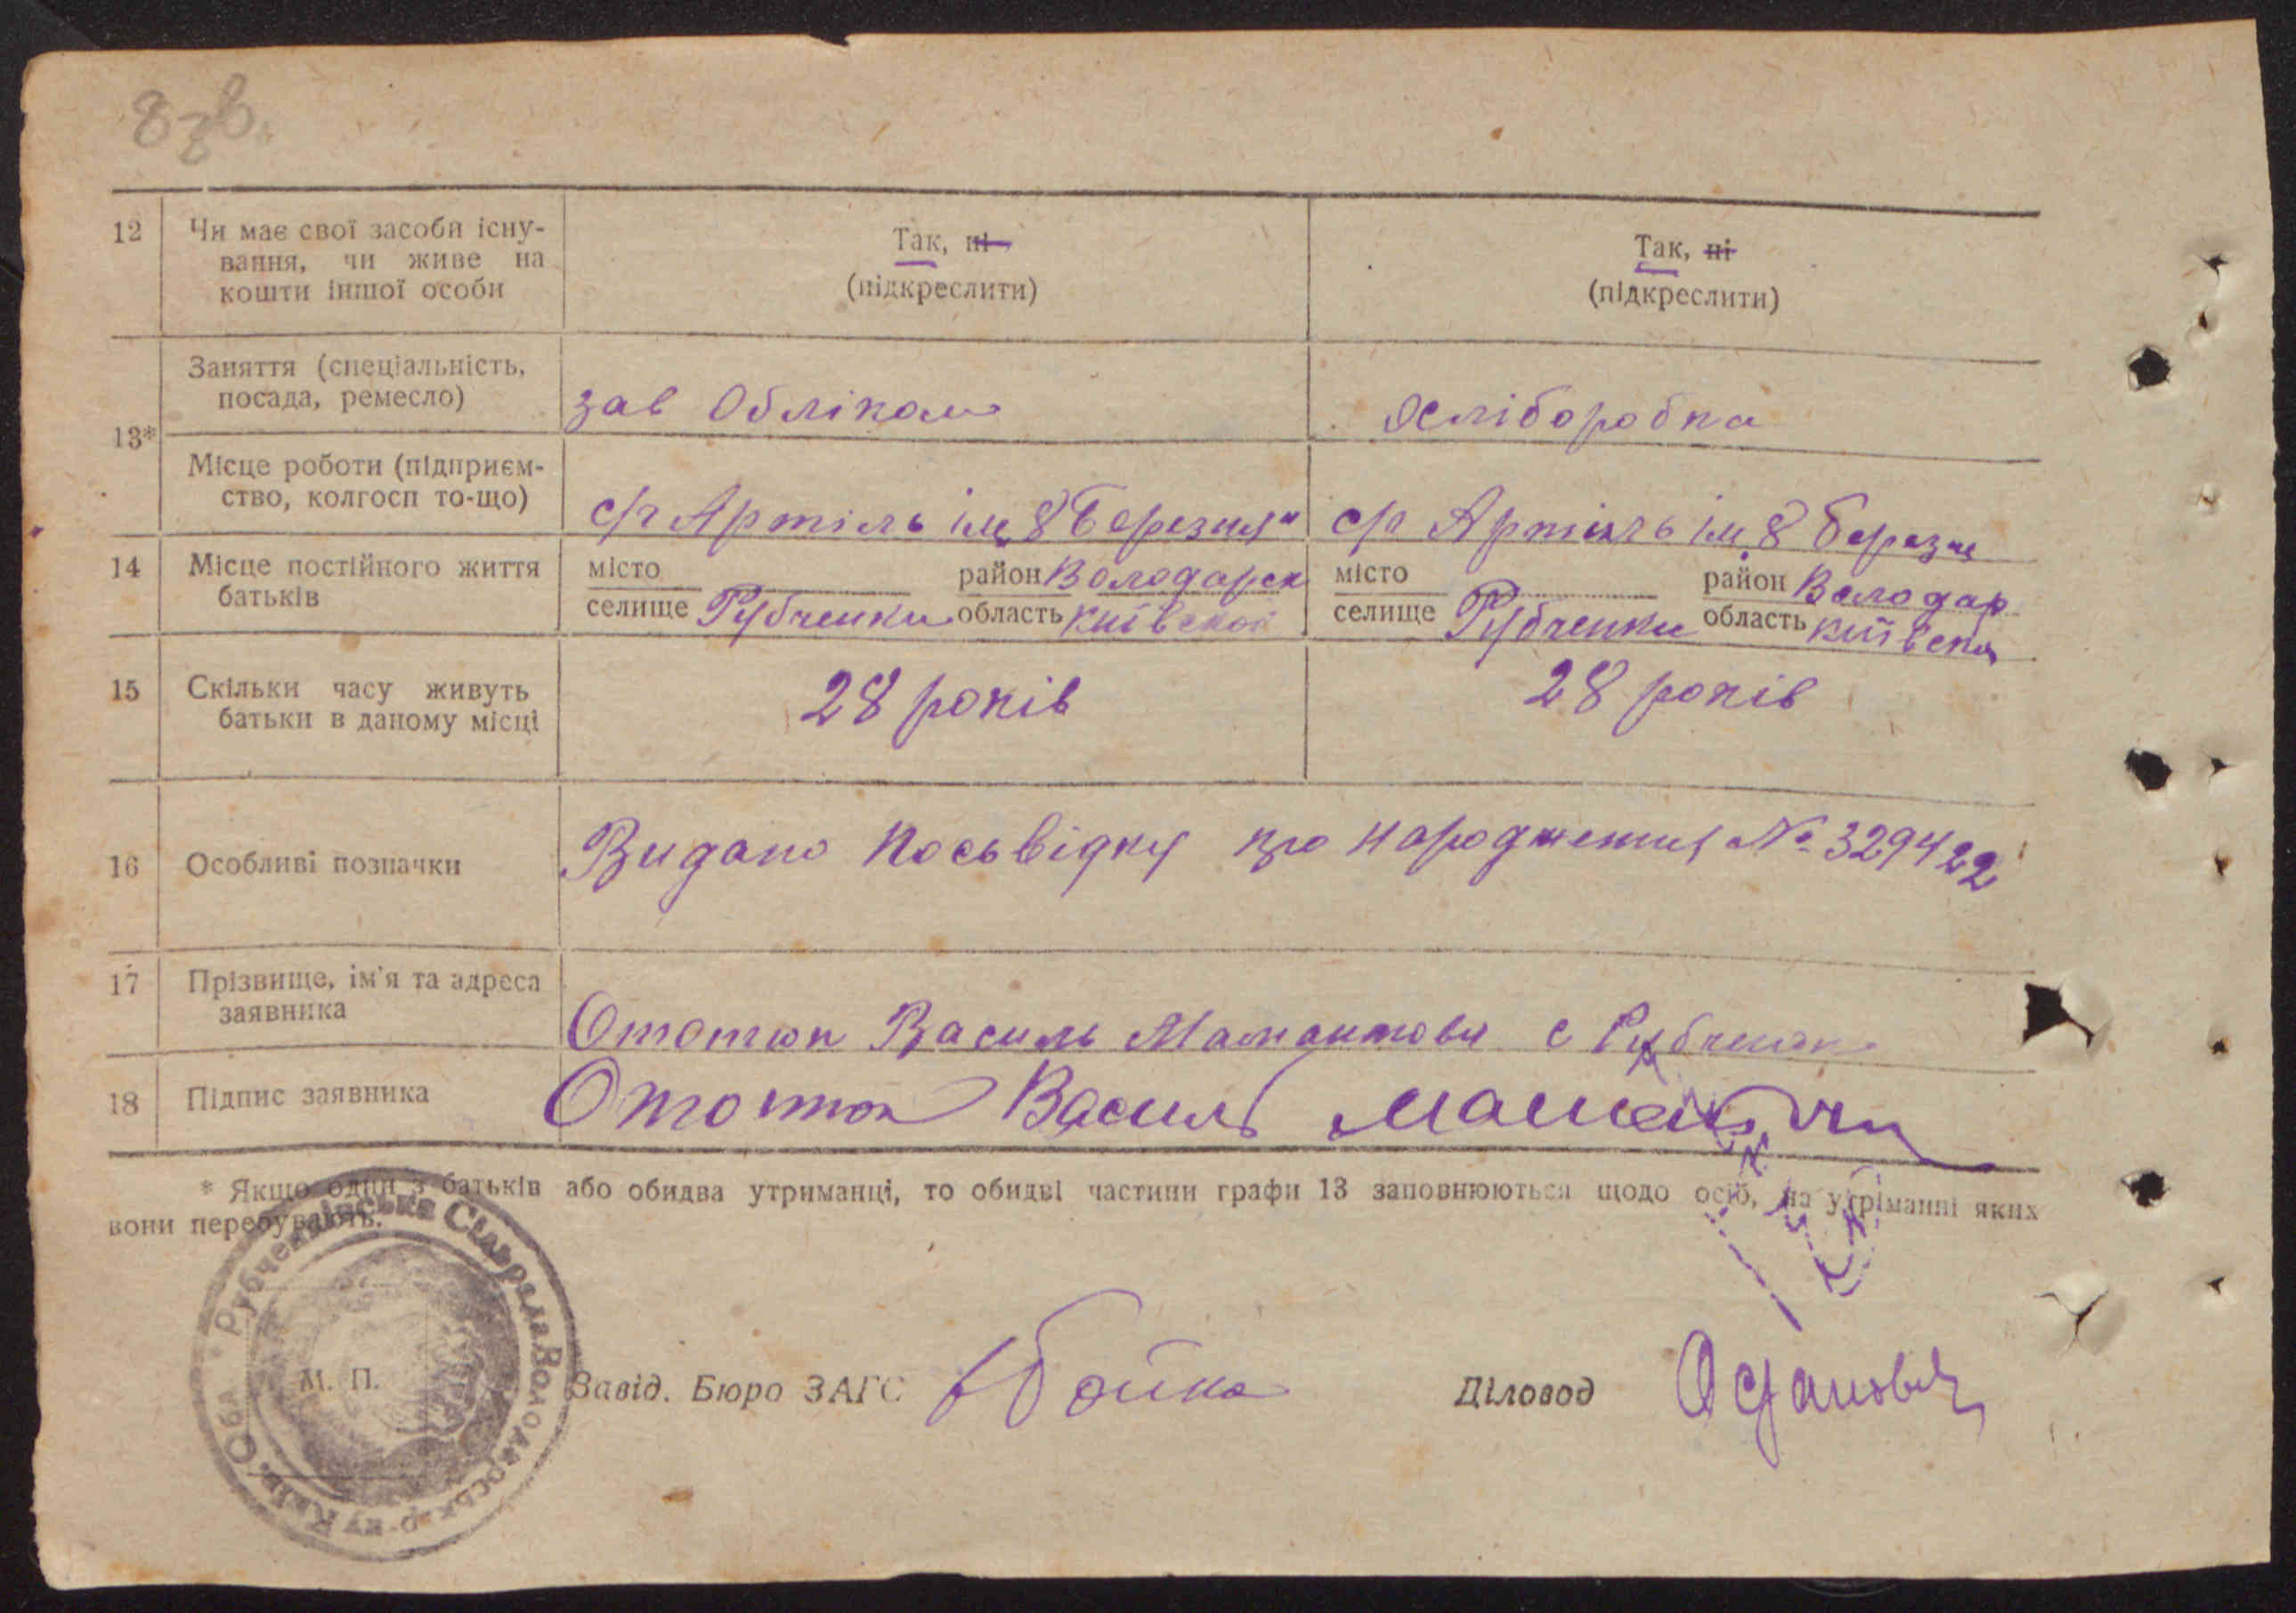 8зв.
12 Чи має свої засоби існу- Так, ні Так, ні
вання, чи живе на (підкреслити) (підкреслити)
кошти іншої особи
13* Заняття (спеціальність,
посада, ремесло) зав Обліком Хліборобка
Місце роботи (підприєм-
ство, колгосп то-що) с/г Артіль ім. 8 Березня" с/г Артіль ім. 8 Березня
14 Місце постійного життя місто район Володарск місто район Володар
батьків селище Рубченки область Київской селище Рубченки область Київска
15 Скільки часу живуть 28 років 28 років
батьки в даному місці
16 Особливі позначки Видано Посьвідку про народження № 329422
17 Прізвище, ім'я та адреса
заявника Ототюк Василь Мамонтови с Рубченки
18 Підпис заявника Ототюк Василь
* Якщо один з батьків або обидва утриманці, то обидві частини графи 13 заповнюються щодо осіб, на утріманні яких
вони перебувають.
Рубченківська Сільрада Володарськ. р-ну Київ. Обл
М. П. Завід. Бюро ЗАГС Бойко Діловод